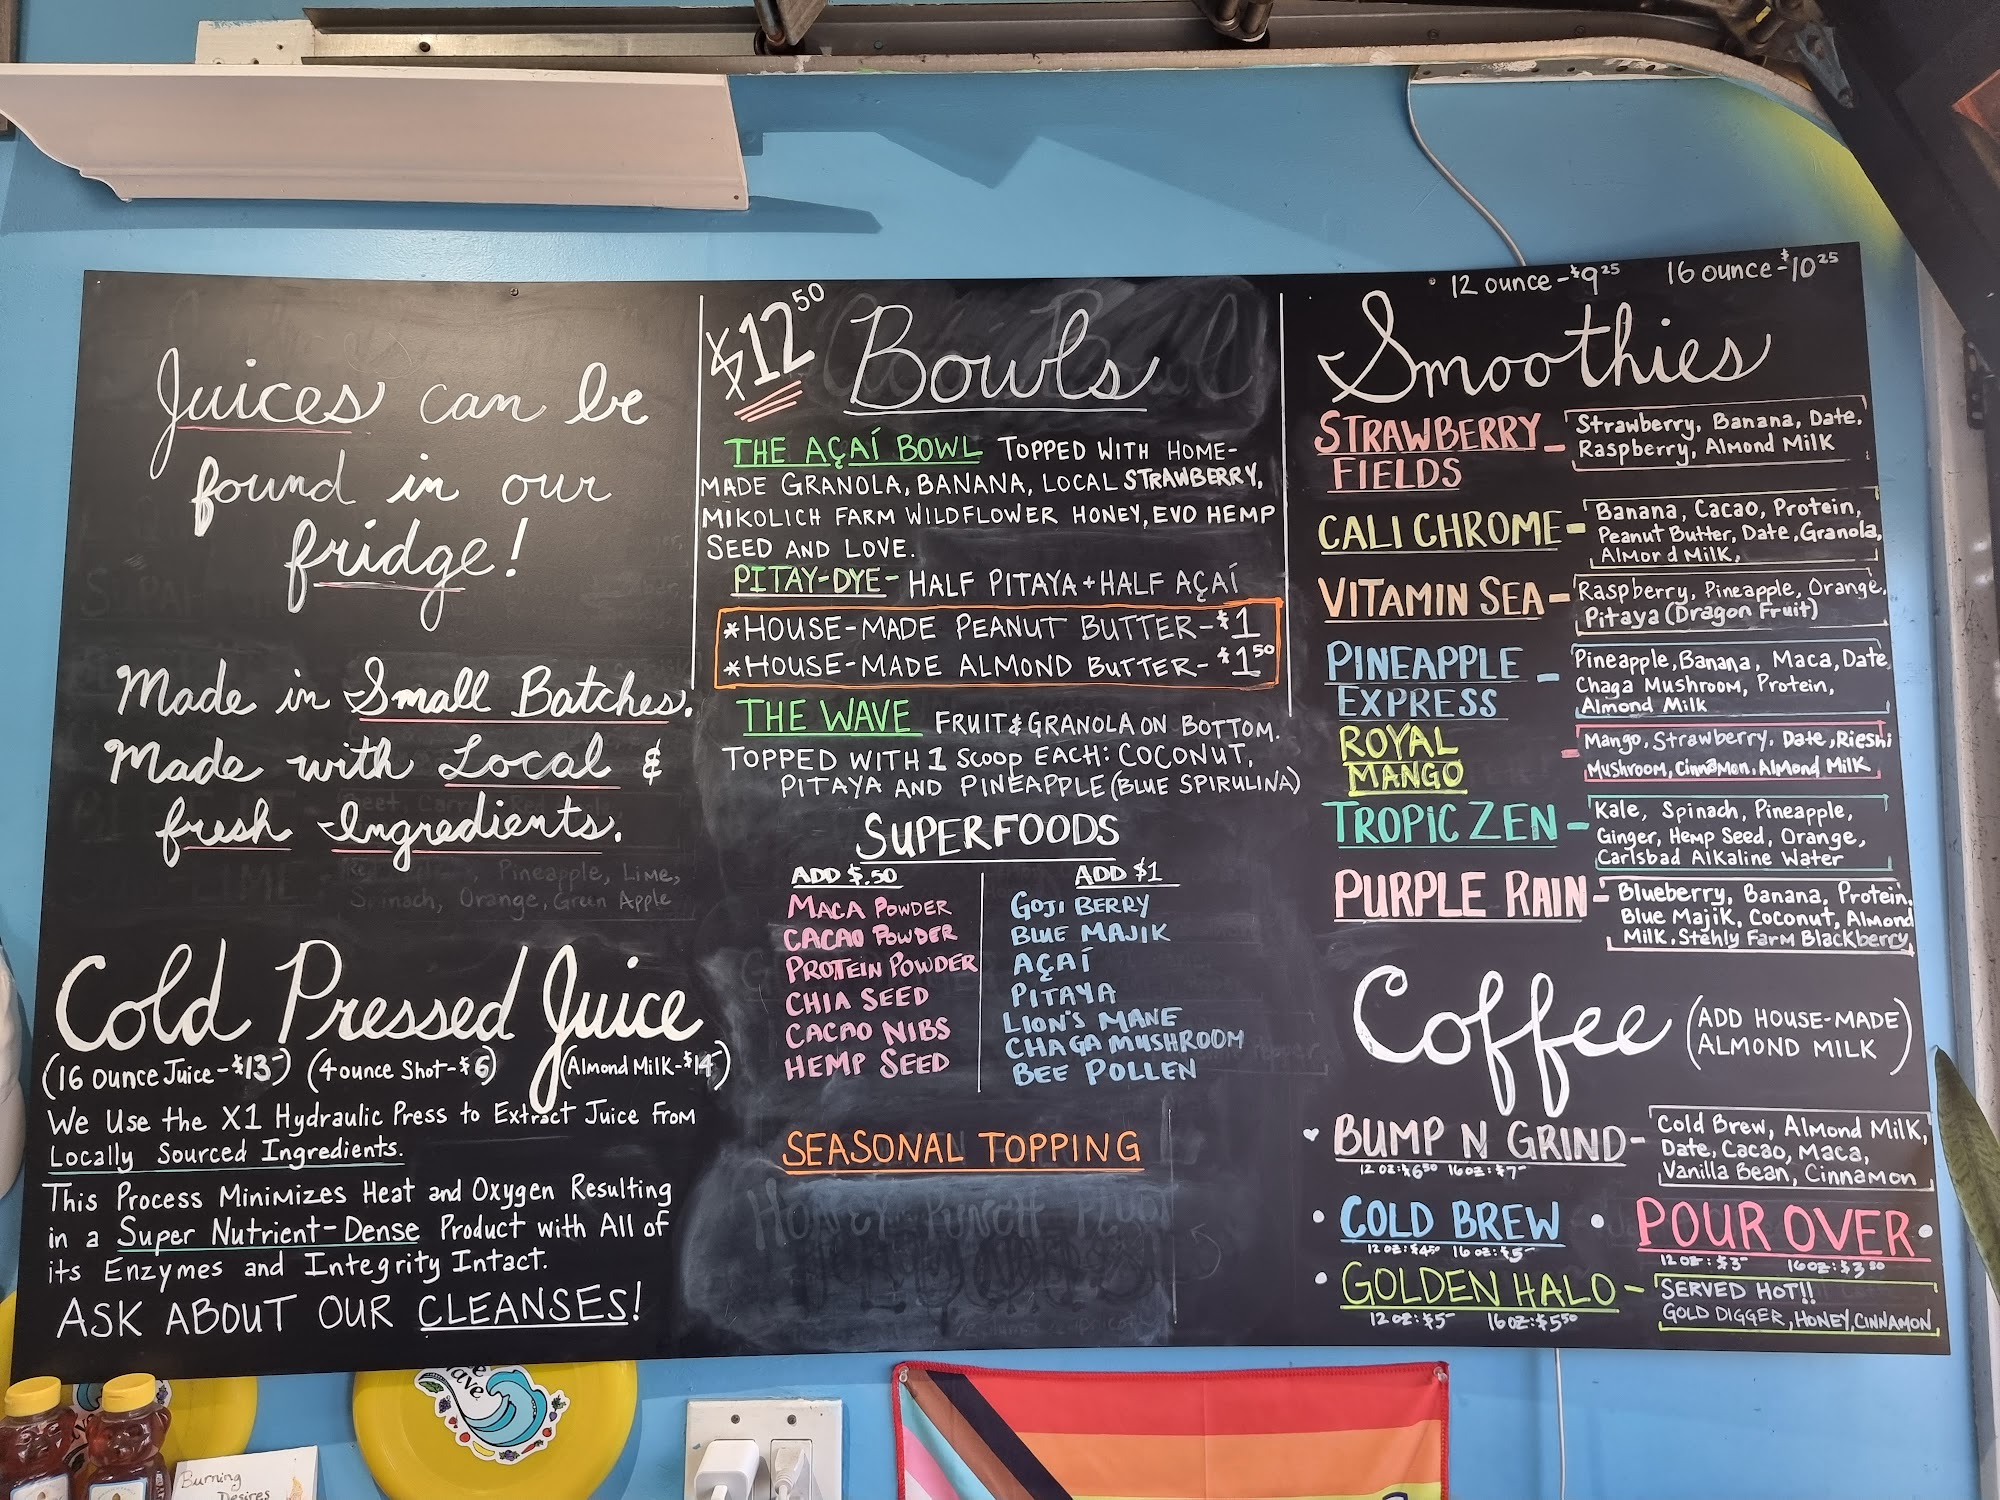 Juices can be
found in our
fridge!
Made in Small Batches.
Made with Local &
fresh Ingredients.
Pineapple, Lime,
Spinach, Orange, Green Apple
Cold Pressed Juice
(16 ounce Juice-$13-) (4 ounce Shot-$6) (Almond Milk-$14-)
We Use the X1 Hydraulic Press to Extract Juice From
Locally Sourced Ingredients.
This Process Minimizes Heat and Oxygen Resulting
in a Super Nutrient-Dense Product with All of
its Enzymes and Integrity Intact.
ASK ABOUT OUR CLEANSES!
$12.50 Bowls
THE AÇAÍ BOWL TOPPED WITH HOME-
MADE GRANOLA, BANANA, LOCAL STRAWBERRY,
MIKOLICH FARM WILDFLOWER HONEY, EVO HEMP
SEED AND LOVE.
PITAY-DYE- HALF PITAYA + HALF AÇAÍ
*HOUSE-MADE PEANUT BUTTER-$1
*HOUSE-MADE ALMOND BUTTER-$1.50
THE WAVE FRUIT & GRANOLA ON BOTTOM.
TOPPED WITH 1 SCOOP EACH: COCONUT,
PITAYA AND PINEAPPLE (BLUE SPIRULINA)
SUPERFOODS
ADD $.50
MACA POWDER
CACAO POWDER
PROTEIN POWDER
CHIA SEED
CACAO NIBS
HEMP SEED
ADD $1
GOJI BERRY
BLUE MAJIK
AÇAÍ
PITAYA
LION'S MANE
CHAGA MUSHROOM
BEE POLLEN
SEASONAL TOPPING
12 ounce-$9.25 16 ounce-$10.25
Smoothies
STRAWBERRY
FIELDS -
Strawberry, Banana, Date,
Raspberry, Almond Milk
CALI CHROME -
Banana, Cacao, Protein,
Peanut Butter, Date, Granola,
Almond Milk,
VITAMIN SEA -
Raspberry, Pineapple, Orange,
Pitaya (Dragon Fruit)
PINEAPPLE
EXPRESS -
Pineapple, Banana, Maca, Date,
Chaga Mushroom, Protein,
Almond Milk
ROYAL
MANGO -
Mango, Strawberry, Date, Rieshi
Mushroom, Cinnamon, Almond Milk
TROPIC ZEN -
Kale, Spinach, Pineapple,
Ginger, Hemp Seed, Orange,
Carlsbad Alkaline Water
PURPLE RAIN -
Blueberry, Banana, Protein,
Blue Majik, Coconut, Almond
Milk, Stehly Farm Blackberry
Coffee (ADD HOUSE-MADE
ALMOND MILK)
BUMP N GRIND-
12 oz: $6.50 16 oz: $7-
Cold Brew, Almond Milk,
Date, Cacao, Maca,
Vanilla Bean, Cinnamon
COLD BREW
12 oz: $4.50 16 oz: $5-
POUR OVER
12 oz: $3- 16 oz: $3.50
GOLDEN HALO -
12 oz: $5- 16 oz: $5.50
SERVED HOT!!
GOLD DIGGER, HONEY, CINNAMON
Burning
Desires